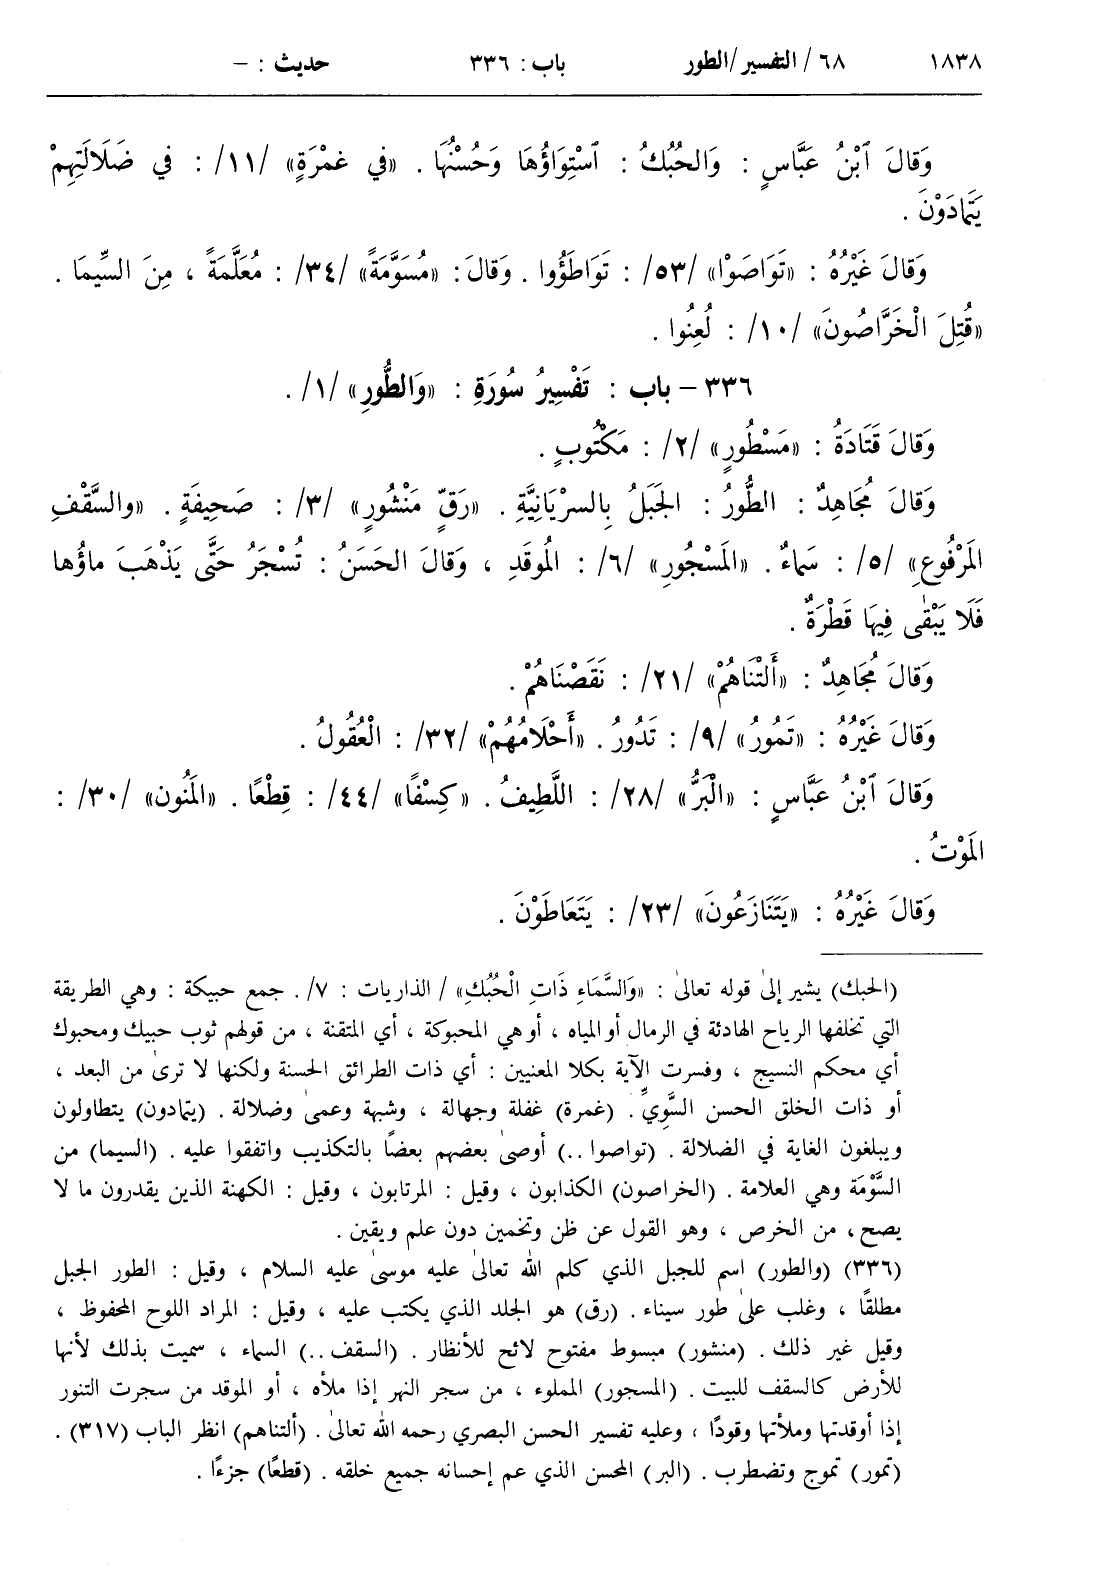 ١٨٣٨ ٦٨ / التفسير /الطور باب : ٣٣٦ حديث : –
وَقَالَ ٱبْنُ عَبَّاسٍ : وَالحُبُكُ : ٱسْتِوَاؤُهَا وَحُسْنُهَا . «في غمْرَةٍ» /١١/ : في ضَلَالَتِهِمْ
يَتَمادَوْنَ .
وَقَالَ غَيْرُهُ : «تَوَاصَوْا» /٥٣/ : تَوَاطَؤُوا . وَقَالَ : «مُسَوَّمَةً» /٣٤/ : مُعَلَّمَةً ، مِنَ السِّيمَا .
«قُتِلَ الْخَرَّاصُونَ» /١٠/ : لُعِنُوا .
٣٣٦ – باب : تَفْسِيرُ سُورَةِ : «وَالطُّورِ» /١/ .
وَقَالَ قَتَادَةُ : «مَسْطُورٍ» /٢/ : مَكْتُوبٍ .
وَقَالَ مُجَاهِدٌ : الطُّورُ : الجَبَلُ بِالسرْيَانِيَّةِ . «رَقٍّ مَنْشُورٍ» /٣/ : صَحِيفَةٍ . «والسَّقْفِ
المَرْفُوعِ» /٥/ : سَماءٌ . «المَسْجُورِ» /٦/ : المُوقَدِ ، وَقَالَ الحَسَنُ : تُسْجَرُ حَتَّى يَذْهَبَ ماؤُها
فَلَا يَبْقٰى فِيهَا قَطْرَةٌ .
وَقَالَ مُجَاهِدٌ : «أَلَتْنَاهُمْ» /٢١/ : نَقَصْنَاهُمْ .
وَقَالَ غَيْرُهُ : «تَمُورُ» /٩/ : تَدُورُ . «أَحْلَامُهُمْ» /٣٢/ : الْعُقُولُ .
وَقَالَ ٱبْنُ عَبَّاسٍ : «الْبَرُّ» /٢٨/ : اللَّطِيفُ . «كِسْفًا» /٤٤/ : قِطْعًا . «المَنُون» /٣٠/ :
المَوْتُ .
وَقَالَ غَيْرُهُ : «يَتَنَازَعُونَ» /٢٣/ : يَتَعَاطَوْنَ .
(الحبك) يشير إلىٰ قوله تعالىٰ : «وَالسَّمَاءِ ذَاتِ الْحُبُكِ» / الذاريات : ٧/ . جمع حبيكة : وهي الطريقة
التي تخلفها الرياح الهادئة في الرمال أو المياه ، أو هي المحبوكة ، أي المتقنة ، من قولهم ثوب حبيك ومحبوك
أي محكم النسيج ، وفسرت الآية بكلا المعنيين : أي ذات الطرائق الحسنة ولكنها لا ترىٰ من البعد ،
أو ذات الخلق الحسن السَّوِيِّ . (غمرة) غفلة وجهالة ، وشبهة وعمىٰ وضلالة . (يتمادون) يتطاولون
ويبلغون الغاية في الضلالة . (تواصوا ..) أوصىٰ بعضهم بعضًا بالتكذيب واتفقوا عليه . (السيما) من
السَّوْمَة وهي العلامة . (الخراصون) الكذابون ، وقيل : المرتابون ، وقيل : الكهنة الذين يقدرون ما لا
يصح ، من الخرص ، وهو القول عن ظن وتخمين دون علم ويقين .
(٣٣٦) (والطور) اسم للجبل الذي كلم الله تعالىٰ عليه موسىٰ عليه السلام ، وقيل : الطور الجبل
مطلقًا ، وغلب علىٰ طور سيناء . (رق) هو الجلد الذي يكتب عليه ، وقيل : المراد اللوح المحفوظ ،
وقيل غير ذلك . (منشور) مبسوط مفتوح لائح للأنظار . (السقف ..) السماء ، سميت بذلك لأنها
للأرض كالسقف للبيت . (المسجور) المملوء ، من سجر النهر إذا ملأه ، أو الموقد من سجرت التنور
إذا أوقدتها وملأتها وقودًا ، وعليه تفسير الحسن البصري رحمه الله تعالىٰ . (ألتناهم) انظر الباب (٣١٧) .
(تمور) تموج وتضطرب . (البر) المحسن الذي عم إحسانه جميع خلقه . (قطعًا) جزءًا .